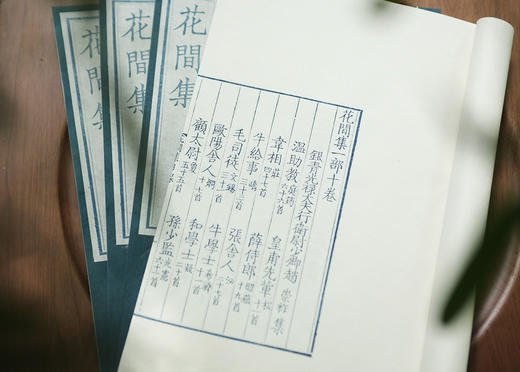 花間集
花間集
花間集
花間集一部十卷
銀青光祿大夫行衛尉少卿趙 崇祚集
溫助教庭筠六十六首 皇甫先輩松十一首
韋相莊四十七首 薛侍郎昭蘊十九首
牛給事嶠 張舍人泌
毛司徒文錫三十一首 牛學士希濟十一首
歐陽舍人炯 和學士凝
顧太尉敻五十五首 孫少監光憲